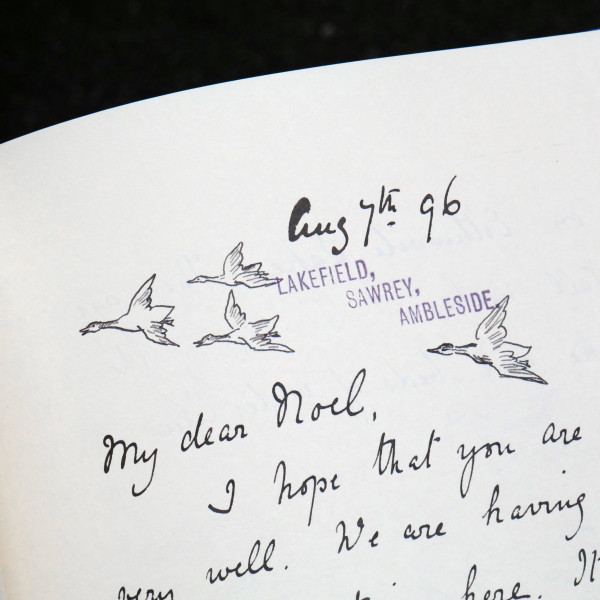 Aug 7th 96
LAKEFIELD,
SAWREY,
AMBLESIDE.
My dear Noel,
I hope that you are
very well. We are having
here. It